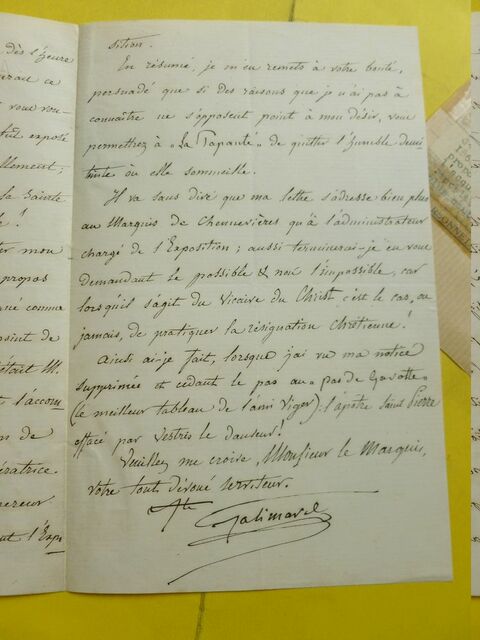 dès l'heure
ce
vous vou-
exposé
llement,
la Sainte
le !
mon
propos
né comme
point de
était M.
l'accom
on de
ératrice.
ereur
l'Exp
sition.
En résumé, je m'en remets à votre bonté,
persuadé que si des raisons que je n'ai pas à
connaître ne s'opposent point à mon désir, vous
permettrez à "La Papauté" de quitter l'humble demi
teinte où elle sommeille.
Il va sans dire que ma lettre s'adresse bien plus
au Marquis de Chennevières qu'à l'administrateur
chargé de l'Exposition ; aussi terminerai-je en vous
demandant le possible & non l'impossible, car
lorsqu'il s'agit du Vicaire du Christ c'est le cas, ou
jamais, de pratiquer la résignation Chrétienne !
Ainsi ai-je fait, lorsque j'ai vu ma notice
supprimée et cédant le pas au "pas de Gavotte"
(le meilleur tableau de l'ami Viger) : l'apôtre Saint Pierre
effacé par Vestris le danseur !
Veuillez me croire, Monsieur le Marquis,
votre tout dévoué serviteur.
Galimard